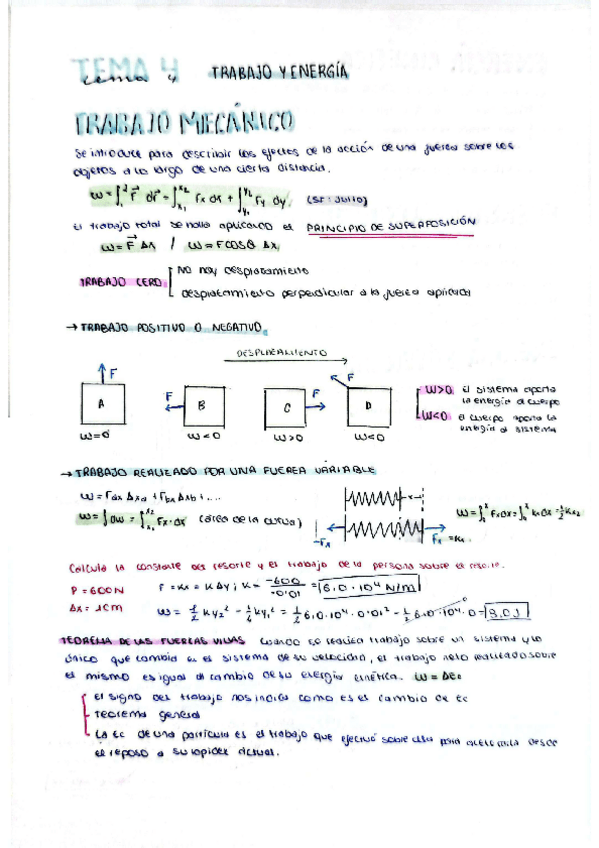 TEMA 4
tema 4
TRABAJO Y ENERGÍA
TRABAJO MECÁNICO
Se introduce para describir los efectos de la acción de una fuerza sobre los
objetos a lo largo de una cierta distancia.
W = ∫₁² F⃗ dr⃗ = ∫ₓ₁ˣ² Fx dx + ∫ᵧ₁ʸ² Fy dy. (SI: Julio)
El trabajo total se halla aplicando el PRINCIPIO DE SUPERPOSICIÓN
W = F⃗ Δx / W = F COSθ Δx
TRABAJO CERO
No hay desplazamiento
desplazamiento perpendicular a la fuerza aplicada
→ TRABAJO POSITIVO O NEGATIVO
DESPLAZAMIENTO
F F F F
A B C D
W=0 W<0 W>0 W<0
W>0 el sistema aporta
la energía al cuerpo
W<0 el cuerpo aporta la
energía al sistema
→ TRABAJO REALIZADO POR UNA FUERZA VARIABLE
W = Fax Δxa + Fbx Δxb + ...
W = ∫ dW = ∫ₓ₁ˣ² Fx · dx (área de la curva)
x
-Fx Fx = Kx
W = ∫₀ˣ Fx dx = ∫₀ˣ kx dx = ½ Kx²
Calcula la constante del resorte y el trabajo de la persona sobre el resorte.
P = 600N F = Kx = K Δy ; K = -600 / -0'01 = 6.0 · 10⁴ N/m
Δx = 1cm W = ½ Ky₂² - ½ Ky₁² = ½ 6.0 · 10⁴ · 0'01² - ½ 6.0 · 10⁴ · 0 = 3.0J
TEOREMA DE LAS FUERZAS VIVAS cuando se realiza trabajo sobre un sistema y lo
único que cambia en el sistema es su velocidad, el trabajo neto realizado sobre
el mismo es igual al cambio de su energía cinética. W = ΔEc
el signo del trabajo nos indica como es el cambio de Ec
teorema general
La Ec de una partícula es el trabajo que efectuó sobre ella para acelerarla desde
el reposo a su rapidez actual.